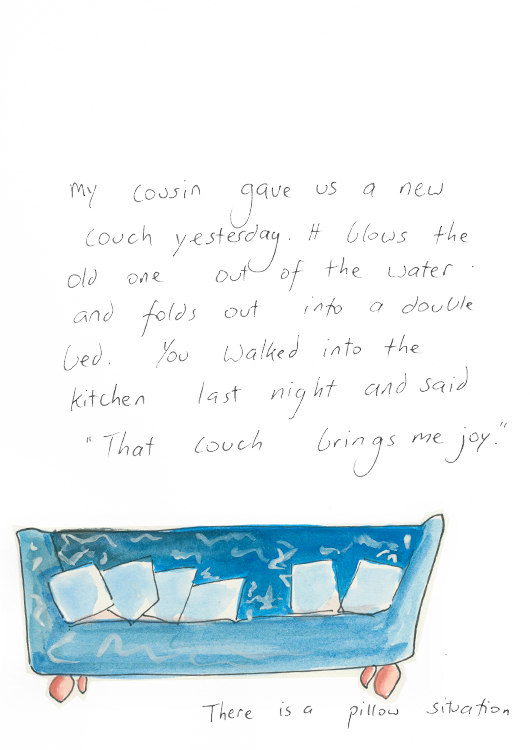 My cousin gave us a new
couch yesterday. It blows the
old one out of the water
and folds out into a double
bed. You walked into the
kitchen last night and said
"That couch brings me joy."
There is a pillow situation